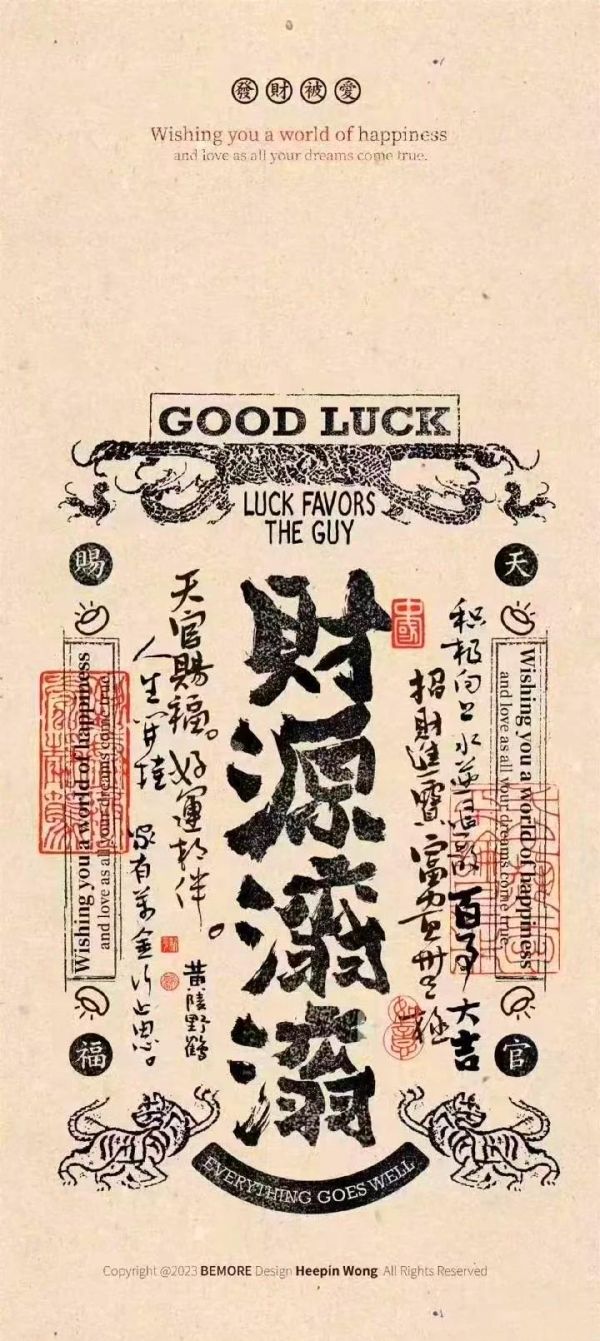 發財被愛
Wishing you a world of happiness
and love as all your dreams come true.
GOOD LUCK
LUCK FAVORS
THE GUY
天
官
賜
福
Wishing you a world of happiness
and love as all your dreams come true.
积极向上水逆退散百事大吉
招財進寶
中國
財源滾滾
天官賜福。好運相伴。
人生開挂 家有萬金
黄陵野鶴
Wishing you a world of happiness
and love as all your dreams come true.
EVERYTHING GOES WELL
Copyright @2023 BEMORE Design Heepin Wong All Rights Reserved